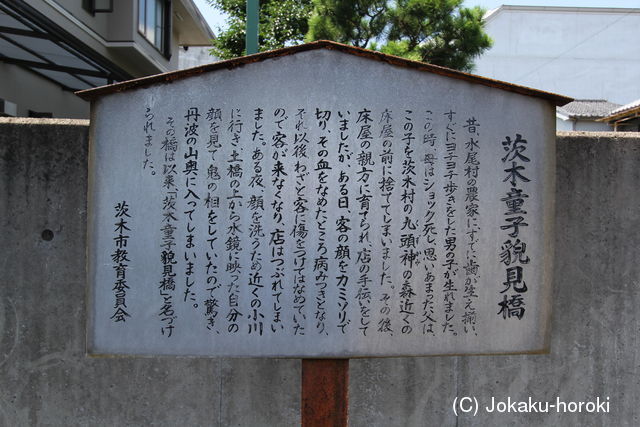 茨木童子貌見橋
昔、水尾村の農家にすでに歯が生え揃い、
すぐにヨチヨチ歩きをした男の子が生れました。
この時、母はショック死し、思いあまった父は、
この子を茨木村の九頭神の森近くの
床屋の前に捨ててしまいました。その後、
床屋の親方に育てられ、店の手伝いをして
いましたが、ある日、客の顔をカミソリで
切り、その血をなめたところ病みつきとなり、
それ以後わざと客に傷をつけてはなめていた
ので客が来なくなり、店はつぶれてしまい
ました。ある夜、顔を洗うため近くの小川
に行き土橋の上から水鏡に映った自分の
顔を見て鬼の相をしていたので驚き、
丹波の山奥に入ってしまいました。
その橋は以来「茨木童子貌見橋」と名づけ
られました。
茨木市教育委員会
(C) Jokaku-horoki